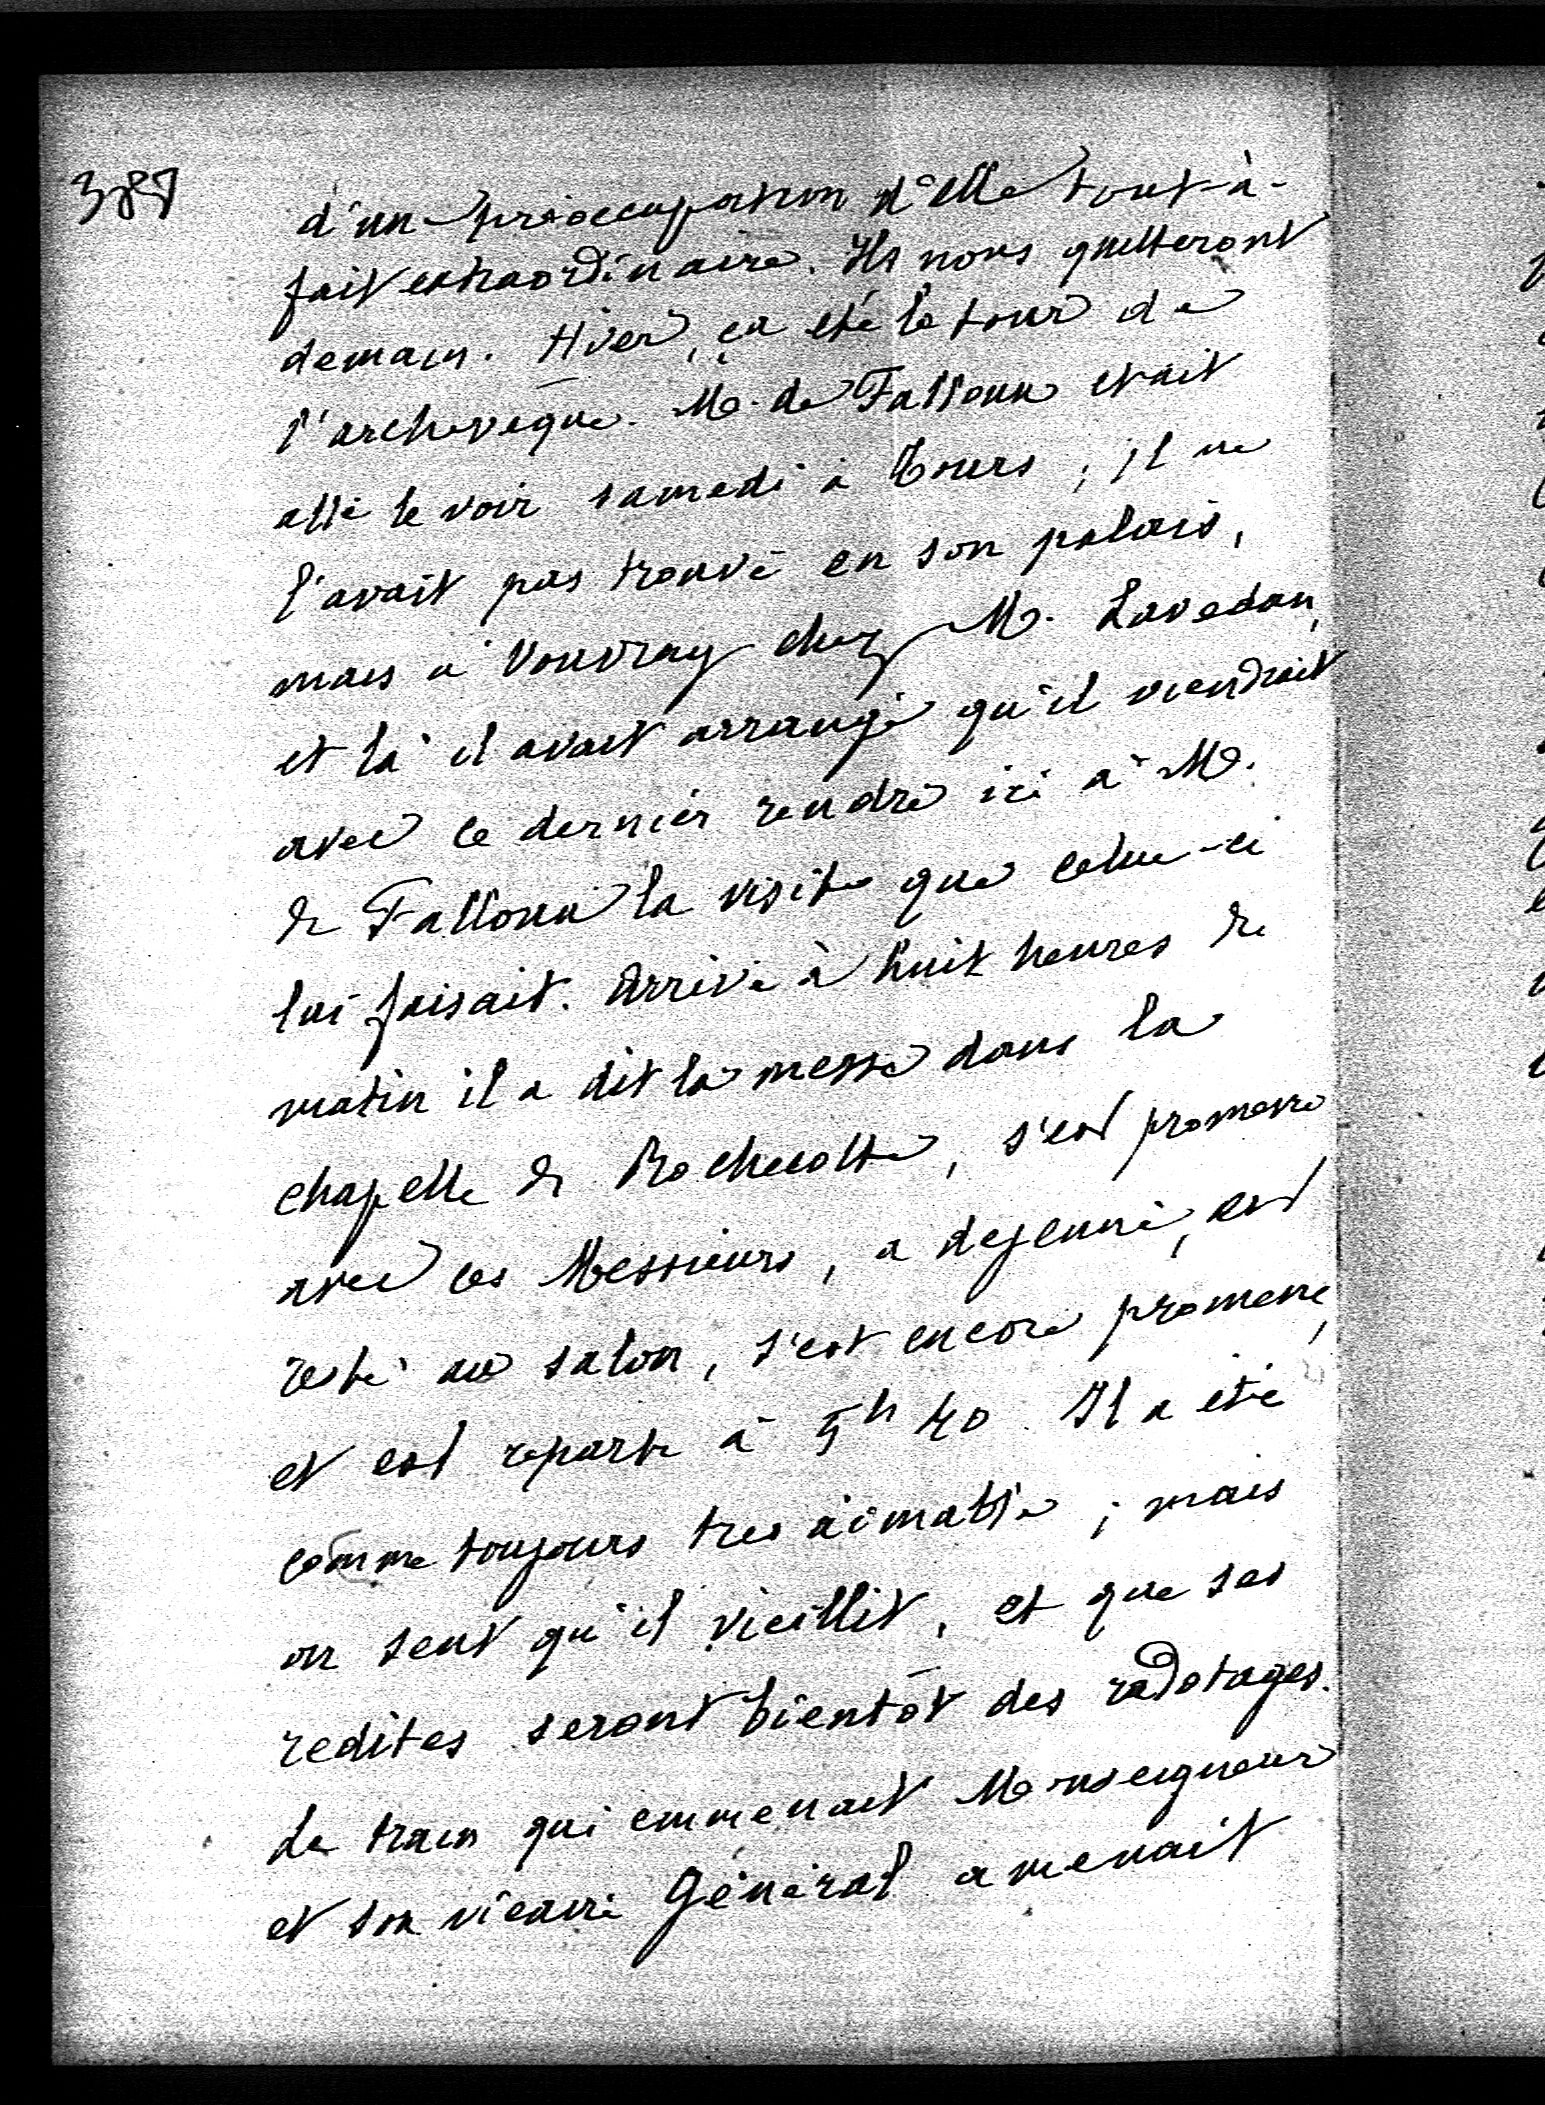 387
d'une préoccupation d'elle tout-à-
fait extraordinaire. Ils nous quitteront
demain. Hier, ça été le tour de
l'archevêque. M. de Falloux était
allé le voir samedi à Tours ; il ne
l'avait pas trouvé en son palais,
mais à Vouvray chez M. Lavedan,
et là il avait arrangé qu'il viendrait
avec ce dernier rendre ici à M.
de Falloux la visite que celui-ci
lui faisait. Arrivé à huit heures du
matin il a dit la messe dans la
chapelle de Rochecotte, s'est promené
avec ces Messieurs, a dejeuné, est
resté au salon, s'est encore promené,
et est reparti à 5h 40. Il a été
comme toujours tres aimable ; mais
on sent qu'il vieillit, et que ses
redites seront bientôt des radotages.
Le train qui emmenait Monseigneur
et son vicaire Général amenait